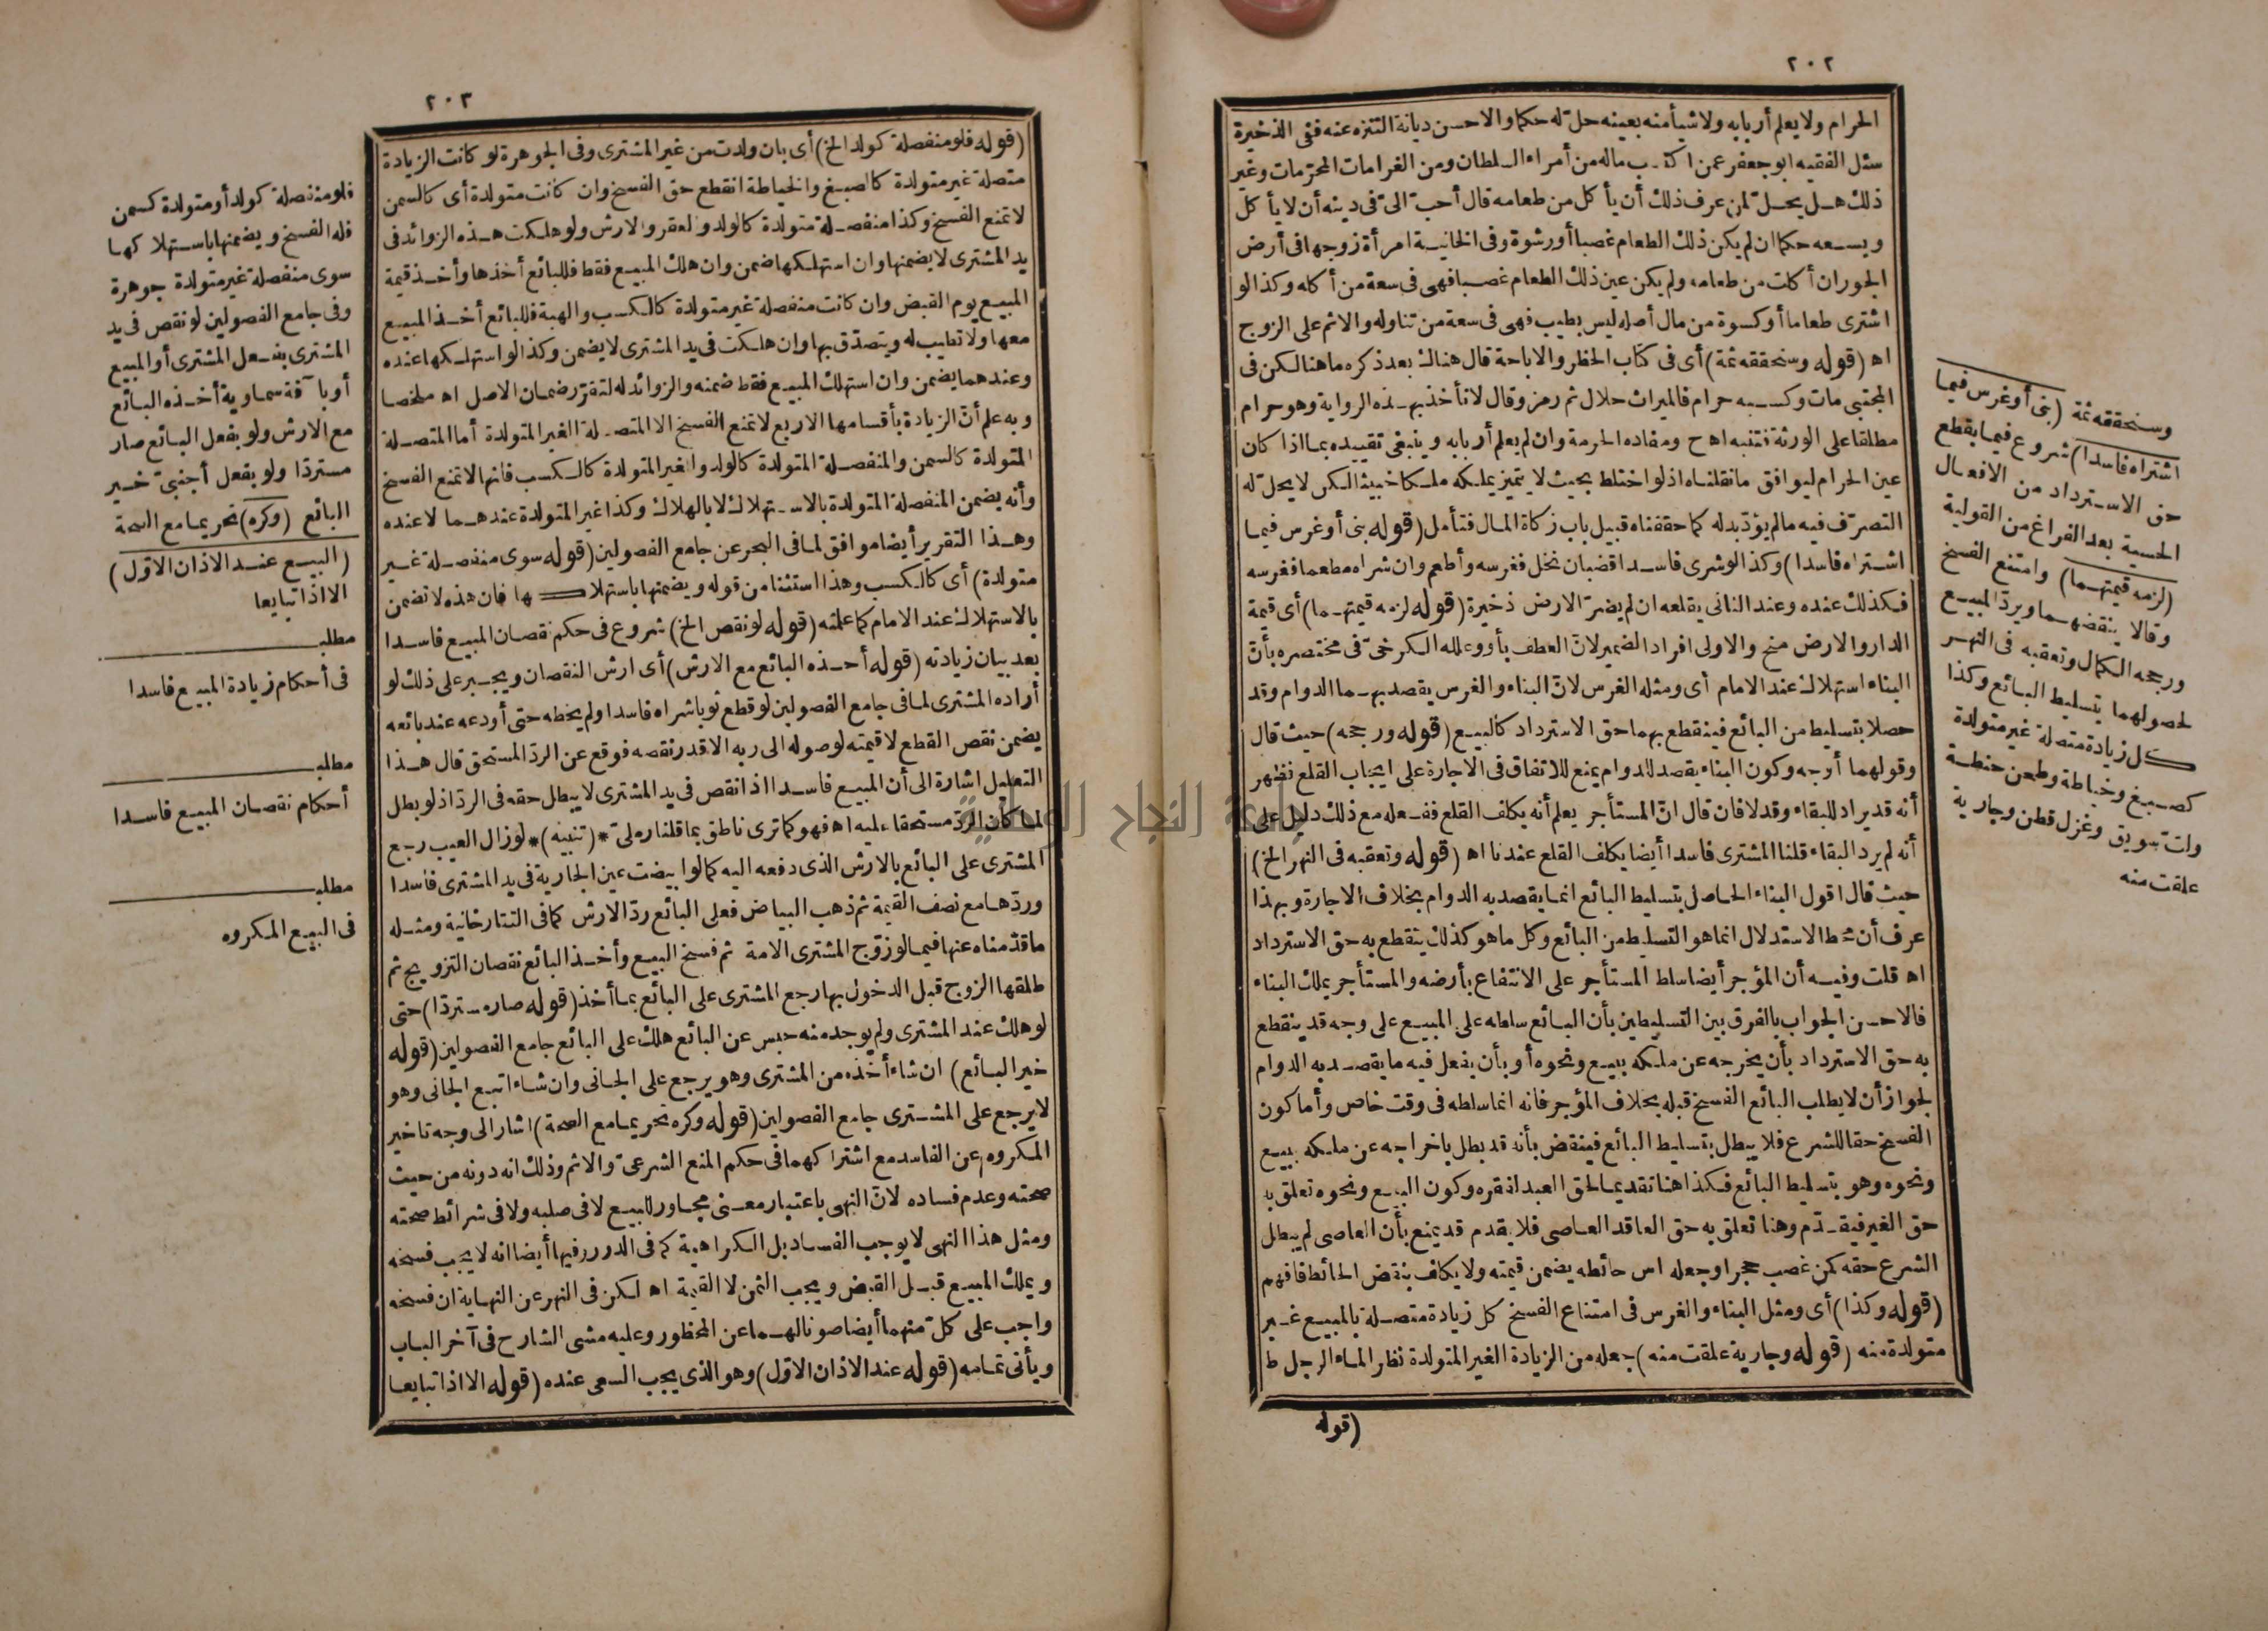 ٢٠٢
الحرام ولا يعلم أربابه ولا شيأ منه بعينه حل له حكما والاحسن ديانة التنزه عنه ففى الذخيرة
سئل الفقيه ابو جعفر عمن اكتسب ماله من أمراء السلطان ومن الغرامات المحرّمات وغير
ذلك هل يحلّ لمن عرف ذلك أن يأكل من طعامه قال أحبّ الىّ فى دينه أن لا يأكل
ويسعه حكما ان لم يكن ذلك الطعام غصبا أو رشوة وفى الخانية امرأة زوجها فى أرض
الجور ان أكلت من طعامه ولم يكن عين ذلك الطعام غصبا فهى فى سعة من أكله وكذا لو
اشترى طعاما أو كسوة من مال أصله ليس بطيب فهى فى سعة من تناوله والاثم على الزوج
اه (قوله وسنحققه ثمة) أى فى كتاب الحظر والاباحة قال هناك بعد ذكره ما هنا لكن فى
المجتبى مات وكسبه حرام فالميراث حلال ثم رمز وقال لا نأخذ بهذه الرواية وهو حرام
مطلقا على الورثة فتنبه اه ح ومفاده الحرمة وان لم يعلم أربابه وينبغى تقييده بما اذا كان
عين الحرام ليوافق ما نقلناه اذ لو اختلط بحيث لا يتميز يملكه ملكا خبيثا لكن لا يحلّ له
التصرّف فيه ما لم يؤدّ بدله كما حققناه قبيل باب زكاة المال فتأمل (قوله بنى أو غرس فيما
اشتراه فاسدا) وكذا لو شرى فاسدا قضبان نخل فغرسه وأطعم وان شراه مطعما فغرسه
فكذلك عنده وعند الثانى يقلعه ان لم يضرّ الارض ذخيرة (قوله لزمه قيمتهما) أى قيمة
الدار والارض منح والاولى افراد الضمير لانّ العطف بأو وعلله الكرخىّ فى مختصره بأنّ
البناء استهلاك عند الامام أى ومثله الغرس لانّ البناء والغرس يقصد بهما الدوام وقد
حصلا بتسليط من البائع فينقطع بهما حق الاسترداد كالبيع (قوله ورجحه) حيث قال
وقولهما أوجه وكون البناء يقصد للدوام يمنع للاتفاق فى الاجارة على ايجاب القلع فظهر
أنه قد يراد للبقاء وقد لا فان قال انّ المستأجر يعلم أنه يكلف القلع ففعله مع ذلك دليل على
أنه لم يرد البقاء قلنا المشترى فاسدا أيضا يكلف القلع عندنا اه (قوله وتعقبه فى النهر الخ)
حيث قال اقول البناء الحاصل بتسليط البائع انما يقصد به الدوام بخلاف الاجارة وبهذا
عرف أن محط الاستدلال انما هو التسليط من البائع وكل ما هو كذلك ينقطع به حق الاسترداد
اه قلت وفيه أن المؤجر أيضا سلط المستأجر على الانتفاع بأرضه والمستأجر يملك البناء
فالاحسن الجواب بالفرق بين التسليطين بأن البائع سلطه على المبيع على وجه قد ينقطع
به حق الاسترداد بأن يخرجه عن ملكه ببيع ونحوه أو بأن يفعل فيه ما يقصد به الدوام
لجواز أن لا يطلب البائع الفسخ قبله بخلاف المؤجر فانه انما سلطه فى وقت خاص وأما كون
الفسخ حقا للشرع فلا يبطل بتسليط البائع فينقض بأنه قد بطل باخراجه عن ملكه ببيع
ونحوه وهو بتسليط البائع فكذا هنا تقديما لحق العبد لفقره وكون البيع ونحوه تعلق به
حق الغير فيقدّم وهنا تعلق به حق العاقد العاصى فلا يقدم قد يمنع بأن العاصى لم يبطل
الشرع حقه كمن غصب حجرا وجعله اس حائطه يضمن قيمته ولا يكلف بنقض الحائط فافهم
(قوله وكذا) أى ومثل البناء والغرس فى امتناع الفسخ كل زيادة متصلة بالمبيع غير
متولدة منه (قوله وجارية علقت منه) جعله من الزيادة الغير المتولدة نظر الماء الرجل ط
(قوله
وسنحققه ثمة (بنى أو غرس فيما
اشتراه فاسدا) شروع فيما يقطع
حق الاسترداد من الافعال
الحسية بعد الفراغ من القولية
(لزمه قيمتهما) وامتنع الفسخ
وقالا ينقضهما ويردّ المبيع
ورجحه الكمال وتعقبه فى النهر
لحصولهما بتسليط البائع وكذا
كل زيادة متصلة غير متولدة
كصبغ وخياطة وطحن حنطة
ولت سويق وغزل قطن وجارية
علقت منه
٢٠٣
(قوله فلو منفصلة كولد الخ) أى بان ولدت من غير المشترى وفى الجوهرة لو كانت الزيادة
متصلة غير متولدة كالصبغ والخياطة انقطع حق الفسخ وان كانت متولدة أى كالسمن
لا تمنع الفسخ وكذا منفصلة متولدة كالولد والعقر والارش ولو هلكت هذه الزوائد فى
يد المشترى لا يضمنها وان استهلكها ضمن وان هلك المبيع فقط فللبائع أخذها وأخذ قيمة
المبيع يوم القبض وان كانت منفصلة غير متولدة كالكسب والهبة فللبائع أخذ المبيع
معها ولا تطيب له ويتصدّق بها وان هلكت فى يد المشترى لا يضمن وكذا لو استهلكها عنده
وعندهما يضمن وان استهلك المبيع فقط ضمنه والزوائد له لتقرّر ضمان الاصل اه ملخصا
وبه علم أنّ الزيادة بأقسامها الاربع لا تمنع الفسخ الا المتصلة الغير المتولدة أما المتصلة
المتولدة كالسمن والمنفصلة المتولدة كالولد والغير المتولدة كالكسب فانها لا تمنع الفسخ
وأنه يضمن المنفصلة المتولدة بالاستهلاك لا بالهلاك وكذا غير المتولدة عندهما لا عنده
وهذا التقرير أيضا موافق لما فى البحر عن جامع الفصولين (قوله سوى منفصلة غير
متولدة) أى كالكسب وهذا استثنا من قوله ويضمنها باستهلاكها فان هذه لا تضمن
بالاستهلاك عند الامام كما علمته (قوله لو نقص الخ) شروع فى حكم نقصان المبيع فاسدا
بعد بيان زيادته (قوله أخذه البائع مع الارش) أى ارش النقصان ويجبر على ذلك لو
أراده المشترى لما فى جامع الفصولين لو قطع ثوبا شراه فاسدا ولم يخطه حتى أودعه عند بائعه
يضمن نقص القطع لا قيمته لوصوله الى ربه الا قدر نقصه فوقع عن الردّ المستحق قال هذا
التعليل اشارة الى أن المبيع فاسدا اذا نقص فى يد المشترى لا يبطل حقه فى الردّ اذ لو بطل
لما كان الردّ مستحقا عليه اه فهو كما ترى ناطق بما قلنا رملىّ *(تنبيه)* لو زال العيب رجع
المشترى على البائع بالارش الذى دفعه اليه كما لو ابيضت عين الجارية فى يد المشترى فاسدا
وردّها مع نصف القيمة ثم ذهب البياض فعلى البائع ردّ الارش كما فى التتارخانية ومثله
ما قدّمناه عنها فيما لو زوّج المشترى الامة ثم فسخ البيع وأخذ البائع نقصان التزويج ثم
طلقها الزوج قبل الدخول بها رجع المشترى على البائع بما أخذ (قوله صار مستردّا) حتى
لو هلك عند المشترى ولم يوجد منه حبس عن البائع هلك على البائع جامع الفصولين (قوله
خير البائع) ان شاء أخذه من المشترى وهو يرجع على الجانى وان شاء اتبع الجانى وهو
لا يرجع على المشترى جامع الفصولين (قوله وكره تحريما مع الصحة) اشار الى وجه تاخير
المكروه عن الفاسد مع اشتراكهما فى حكم المنع الشرعىّ والاثم وذلك انه دونه من حيث
صحته وعدم فساده لانّ النهى باعتبار معنى مجاور للبيع لا فى صلبه ولا فى شرائط صحته
ومثل هذا النهى لا يوجب الفساد بل الكراهية كما فى الدرر وفيها أيضا انه لا يجب فسخه
ويملك المبيع قبل القبض ويجب الثمن لا القيمة اه لكن فى النهر عن النهاية ان فسخه
واجب على كلّ منهما أيضا صونا لهما عن المحظور وعليه مشى الشارح فى آخر الباب
ويأتى تمامه (قوله عند الاذان الاوّل) وهو الذى يجب السعى عنده (قوله الا اذا تبايعا
فلو منفصلة كولد أو متولدة كسمن
فله الفسخ ويضمنها باستهلاكها
سوى منفصلة غير متولدة جوهرة
وفى جامع الفصولين لو نقص فى يد
المشترى بفعل المشترى أو المبيع
أو بآفة سماوية أخذه البائع
مع الارش ولو بفعل البائع صار
مستردّا ولو بفعل أجنبىّ خير
البائع (وكره) تحريما مع الصحة
(البيع عند الاذان الاوّل)
الا اذا تبايعا
مطلب
فى أحكام زيادة المبيع فاسدا
مطلب
أحكام نقصان المبيع فاسدا
مطلب
فى البيع المكروه
جامعة النجاح الوطنية